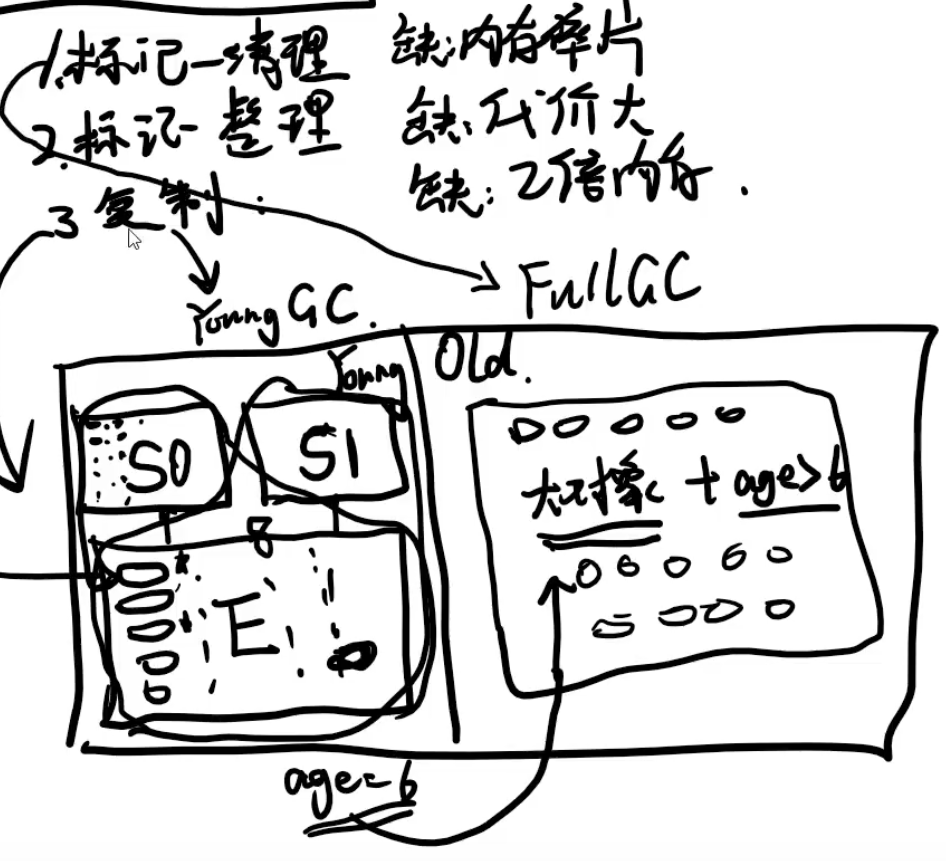 1.标记—清理 缺:内存碎片
2.标记—整理 缺:代价大
3 复制. 缺:2倍内存.
Young GC.
Full GC
Young
Old.
S0
S1
8
E
大对象 + age>6
age=6